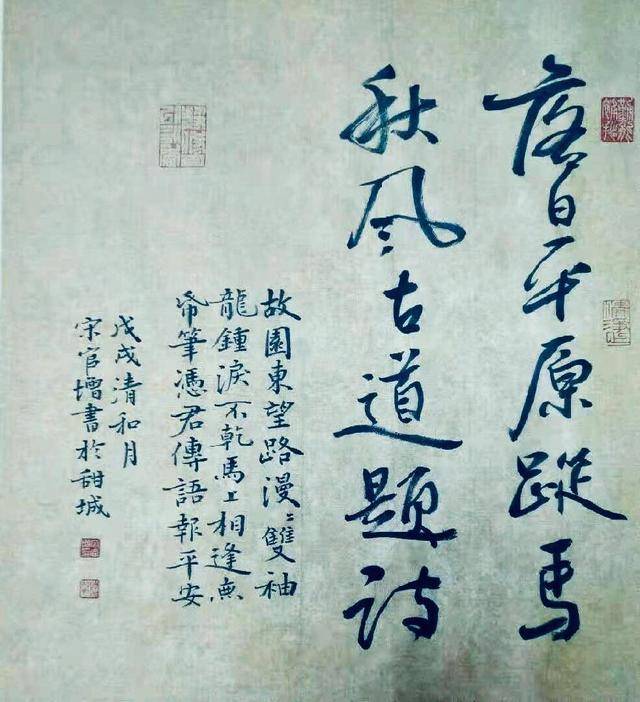 落日平原蹤馬
秋風古道題詩
故園東望路漫〻雙袖
龍鍾淚不乾馬上相逢無
帋筆憑君傳語報平安
戊戌清和月
宋官增書於甜城